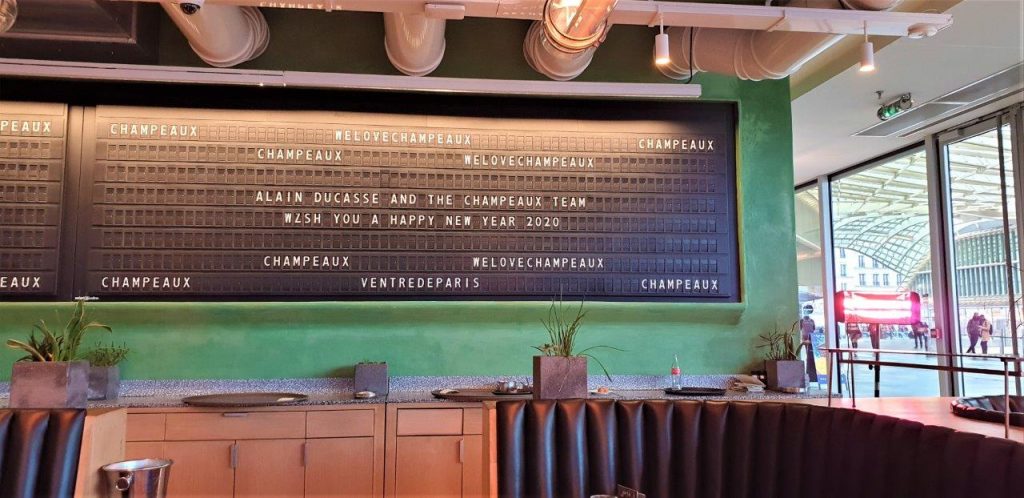 PEAUX CHAMPEAUX WELOVECHAMPEAUX CHAMPEAUX
CHAMPEAUX WELOVECHAMPEAUX
ALAIN DUCASSE AND THE CHAMPEAUX TEAM
WZSH YOU A HAPPY NEW YEAR 2020
CHAMPEAUX WELOVECHAMPEAUX
EAUX CHAMPEAUX VENTREDEPARIS CHAMPEAUX